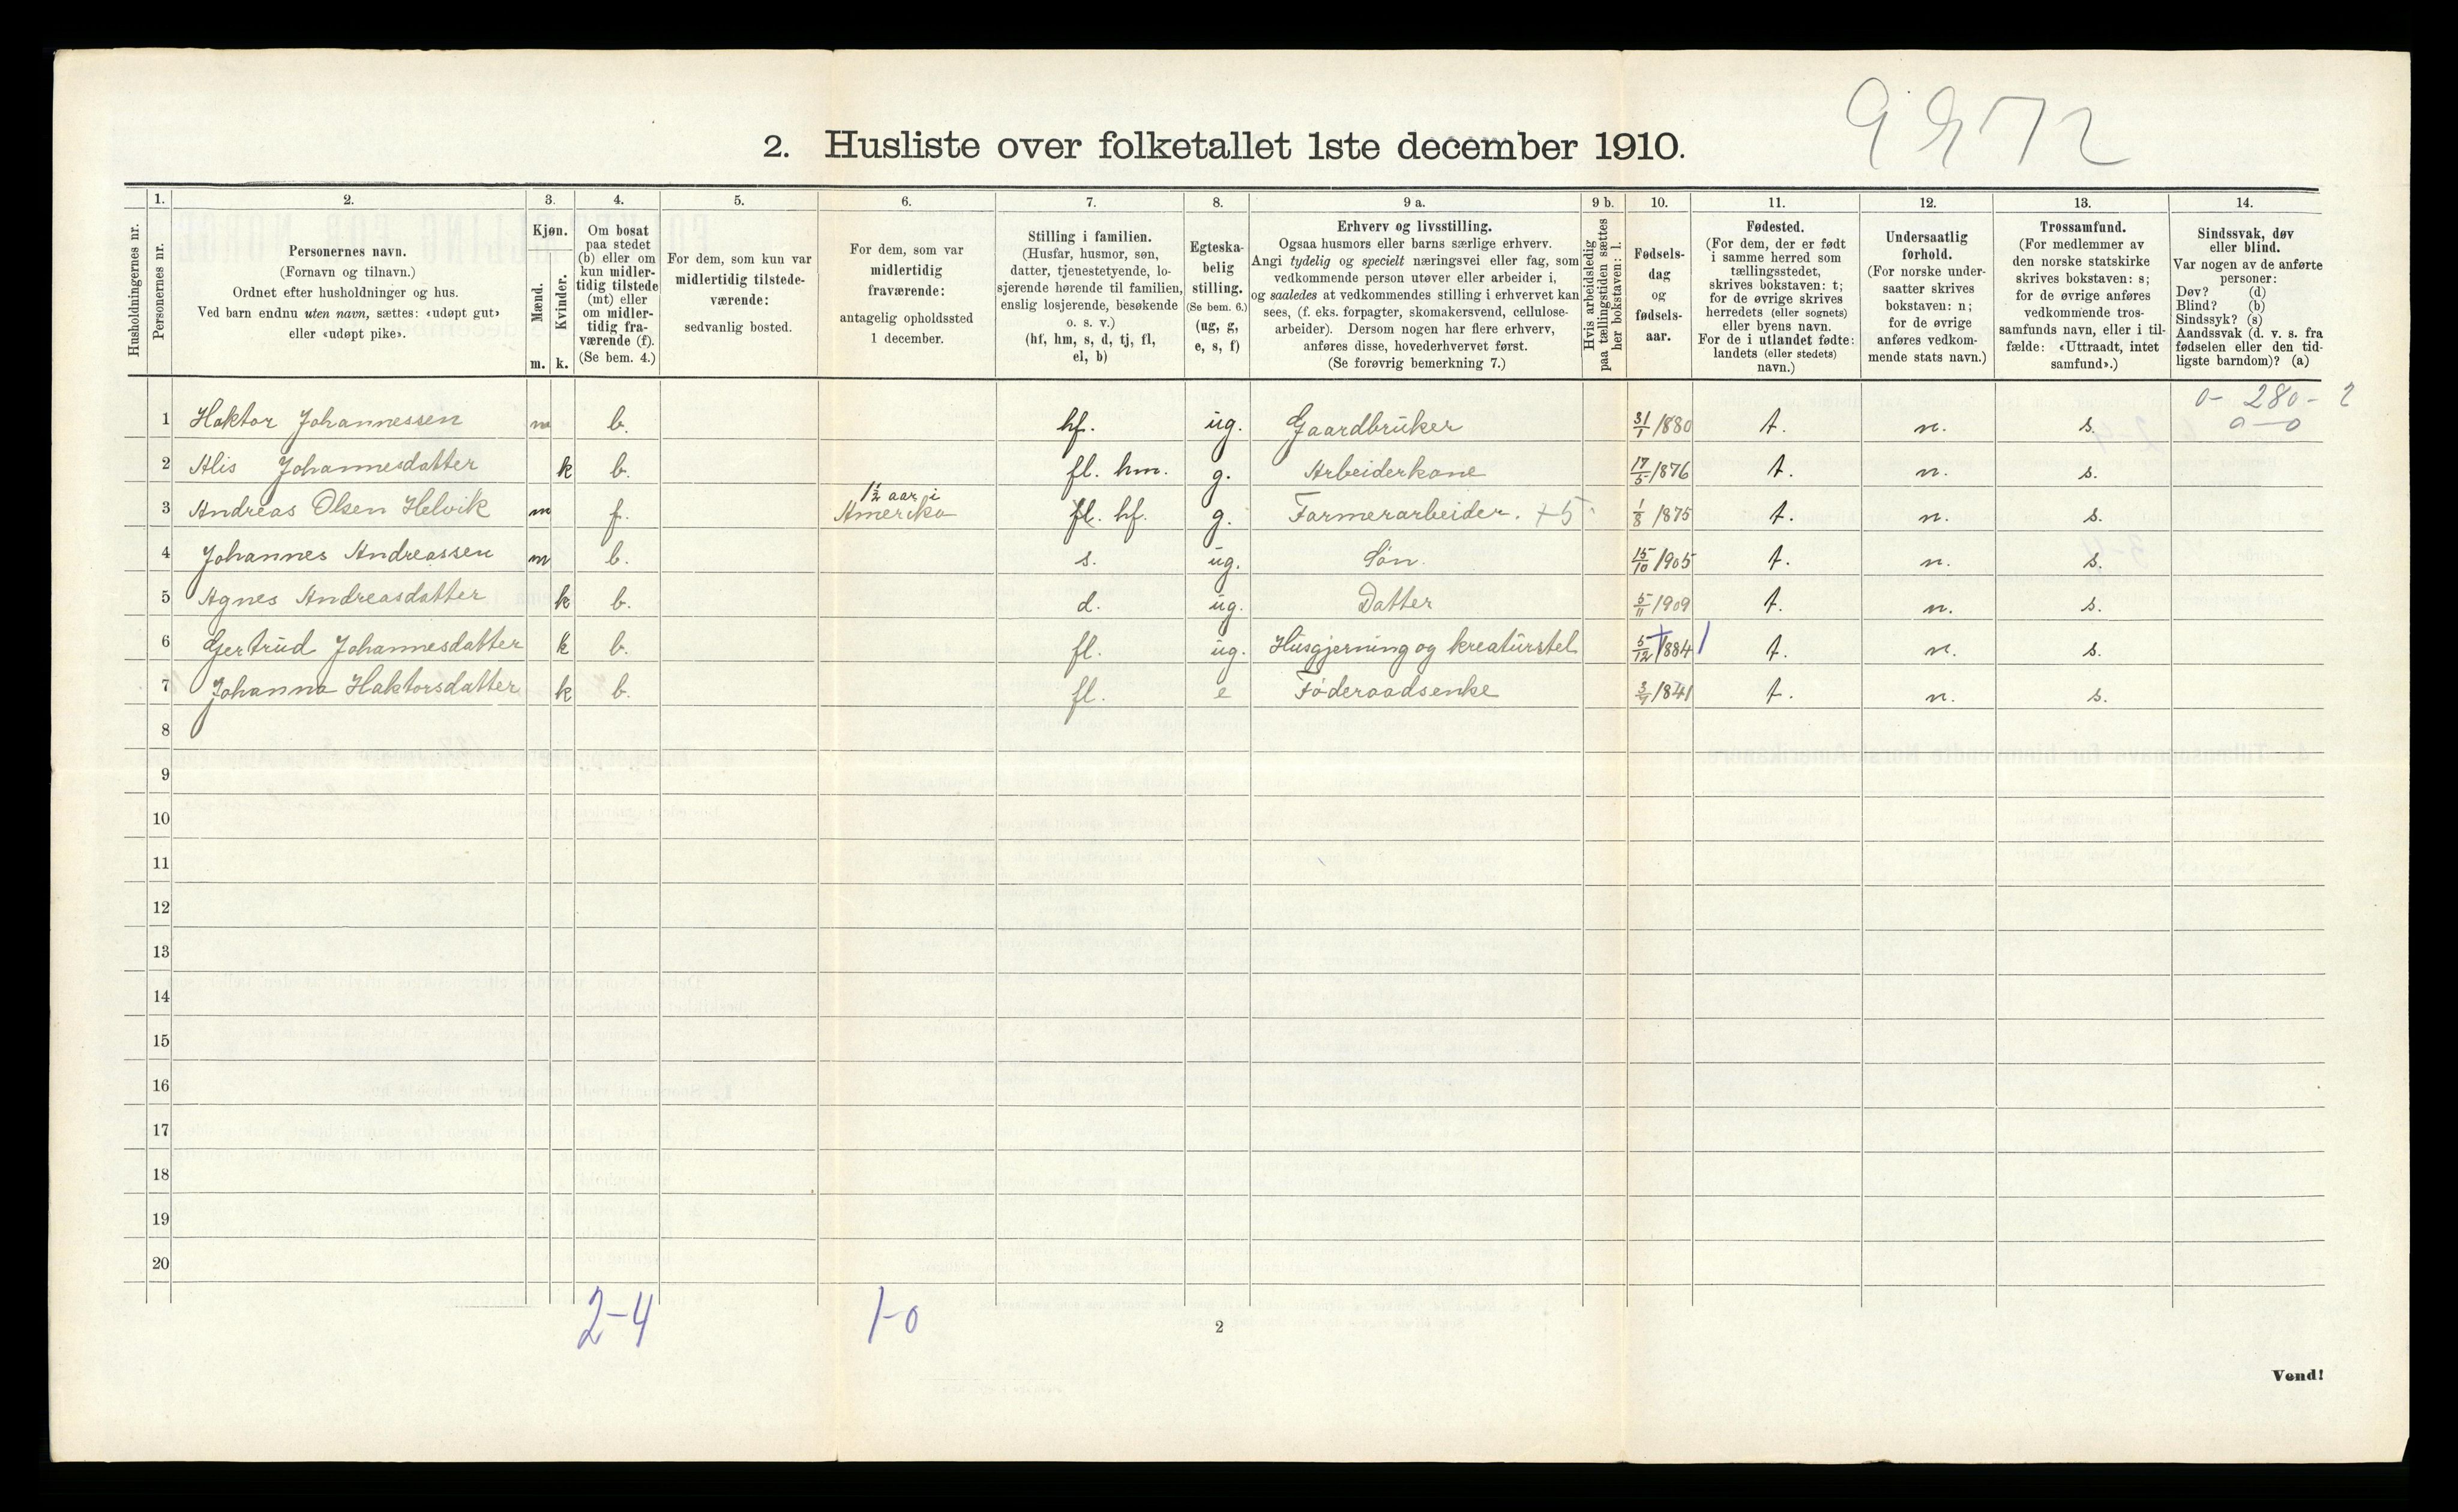 2. Husliste over folketallet 1ste december 1910.
1. 2. 3. 4. 5. 6. 7. 8. 9 a. 9 b. 10. 11. 12. 13. 14.
Husholdningernes nr.
Personernes nr.
Personernes navn.
(Fornavn og tilnavn.)
Ordnet efter husholdninger og hus.
Ved barn endnu uten navn, sættes: «udøpt gut»
eller «udøpt pike».
Kjøn.
Mænd.
Kvinder.
m. k.
Om bosat
paa stedet
(b) eller om
kun midler-
tidig tilstede
(mt) eller
om midler-
tidig fra-
værende (f).
(Se bem. 4.)
For dem, som kun var
midlertidig tilstede-
værende:
sedvanlig bosted.
For dem, som var
midlertidig
fraværende:
antagelig opholdssted
1 december.
Stilling i familien.
(Husfar, husmor, søn,
datter, tjenestetyende, lo-
sjerende hørende til familien,
enslig losjerende, besøkende
o. s. v.)
(hf, hm, s, d, tj, fl,
el, b)
Egteska-
belig
stilling.
(Se bem. 6.)
(ug, g,
e, s, f)
Erhverv og livsstilling.
Ogsaa husmors eller barns særlige erhverv.
Angi tydelig og specielt næringsvei eller fag, som
vedkommende person utøver eller arbeider i,
og saaledes at vedkommendes stilling i erhvervet kan
sees, (f. eks. forpagter, skomakersvend, cellulose-
arbeider). Dersom nogen har flere erhverv,
anføres disse, hovederhvervet først.
(Se forøvrig bemerkning 7.)
Hvis arbeidsledig
paa tællingstiden sættes
her bokstaven: l.
Fødsels-
dag
og
fødsels-
aar.
Fødested.
(For dem, der er født
i samme herred som
tællingsstedet,
skrives bokstaven: t;
for de øvrige skrives
herredets (eller sognets)
eller byens navn.
For de i utlandet fødte:
landets (eller stedets)
navn.)
Undersaatlig
forhold.
(For norske under-
saatter skrives
bokstaven: n;
for de øvrige
anføres vedkom-
mende stats navn.)
Trossamfund.
(For medlemmer av
den norske statskirke
skrives bokstaven: s;
for de øvrige anføres
vedkommende tros-
samfunds navn, eller i til-
fælde: «Uttraadt, intet
samfund».)
Sindssvak, døv
eller blind.
Var nogen av de anførte
personer:
Døv? (d)
Blind? (b)
Sindssyk? (s)
Aandssvak (d. v. s. fra
fødselen eller den tid-
ligste barndom)? (a)
0 - 280 - 2
0 - 0
1 Haktor Johannessen m b. hf. ug. Gaardbruker 31/1 1880 t. n. s.
2 Alis Johannesdatter k b. fl. hm. g. Arbeiderkone 17/5 1876 t. n. s.
1½ aar i
3 Andreas Olsen Helvik m f. Amerika fl. hf. g. Farmerarbeider. +5 1/8 1875 t. n. s.
4 Johannes Andreassen m b. s. ug. Søn. 15/10 1905 t. n. s.
5 Agnes Andreasdatter k b. d. ug. Datter 5/11 1909 t. n. s.
6 Gjertrud Johannesdatter k b. fl. ug. Husgjerning og kreaturstel 5/12 1884 t. n. s.
7 Johanna Haktorsdatter k b. fl. e Føderaadsenke 1841 t. n. s.
8
9
10
11
12
13
14
15
16
17
18
19
20
2-4 1-0
2
Vend!